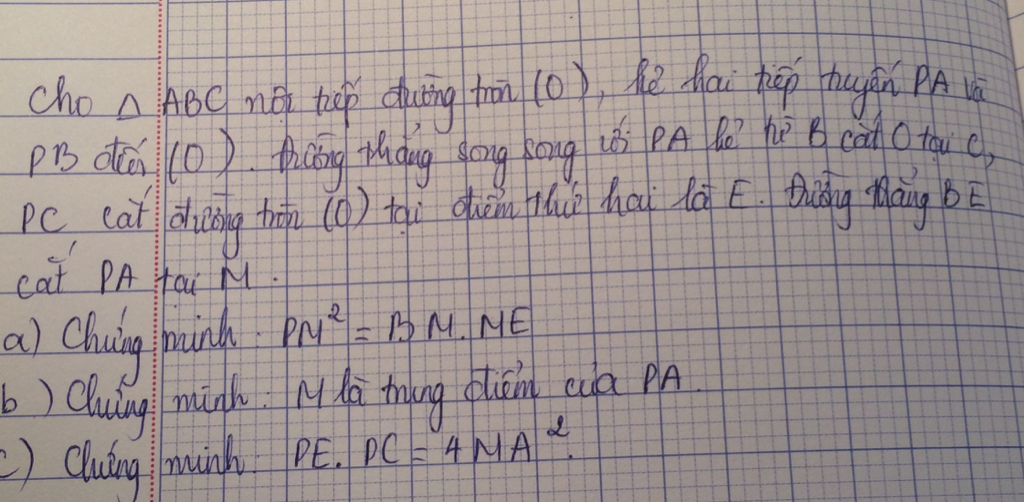 Cho △ ABC nội tiếp đường tròn (O), kẻ hai tiếp tuyến PA và
PB đến (O). Đường thẳng song song với PA kẻ từ B cắt O tại C,
PC cắt đường tròn (O) tại điểm thứ hai là E. Đường thẳng BE
cắt PA tại M.
a) Chứng minh: PM² = BM.ME
b) Chứng minh: M là trung điểm của PA.
c) Chứng minh: PE.PC = 4MA².